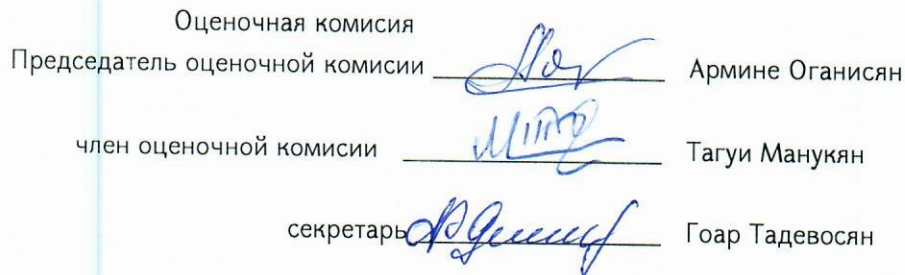 Оценочная комисия
Председатель оценочной комисии Армине Оганисян
член оценочной комисии Тагуи Манукян
секретарь Гоар Тадевосян